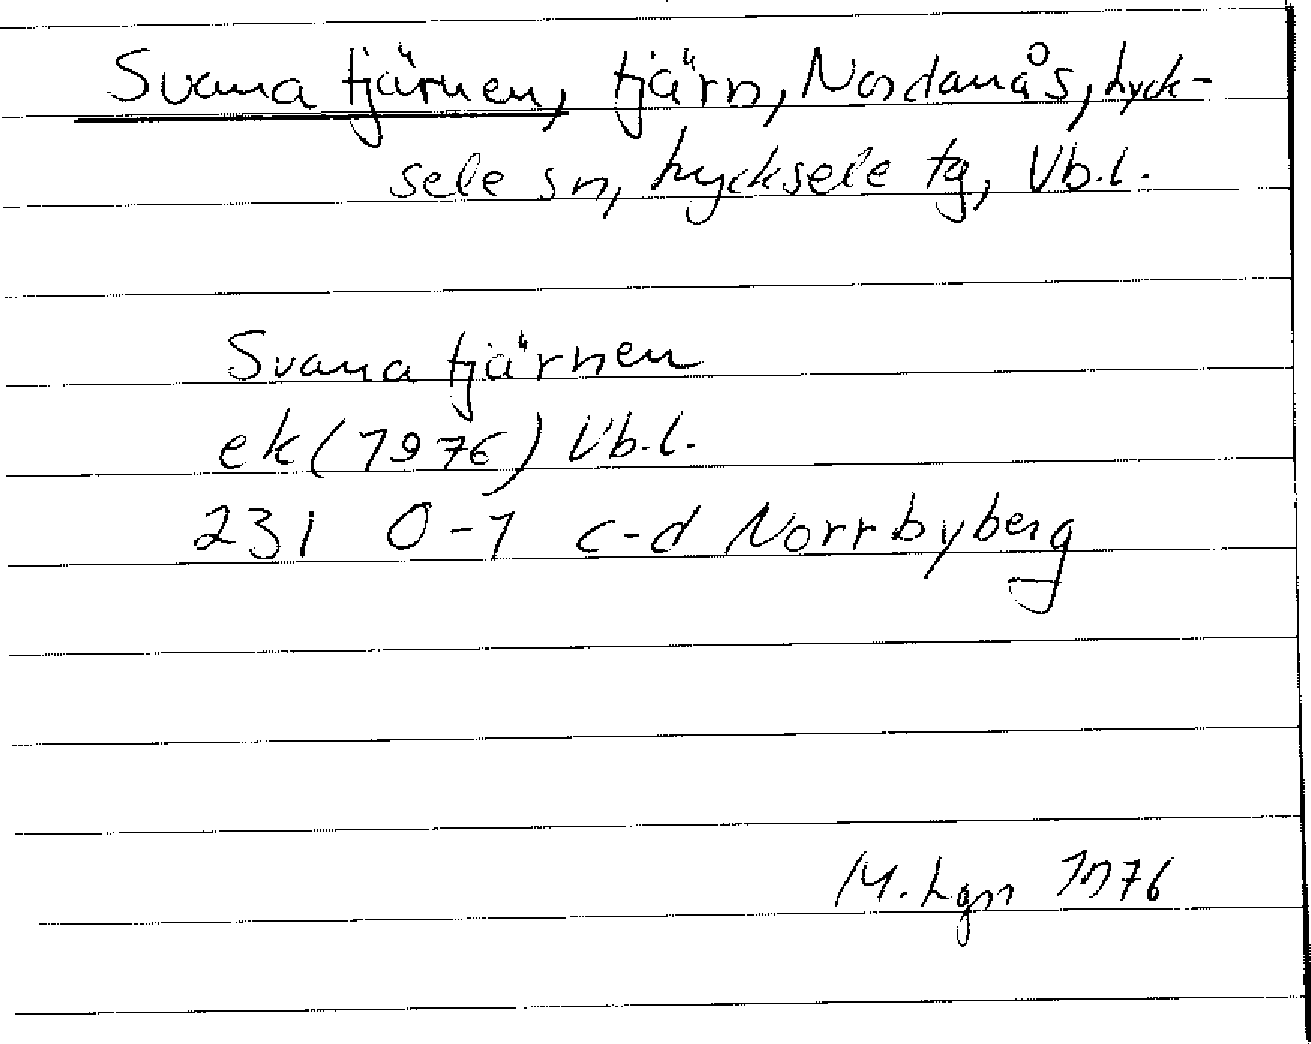 Svanatjärnen, tjärn, Nordanås, Lyck-
sele sn, Lycksele tg, Vb.l.
Svanatjärnen
ek (1976) Vb.l.
23I 0-1 c-d Norrbyberg
M. Lgn 1976